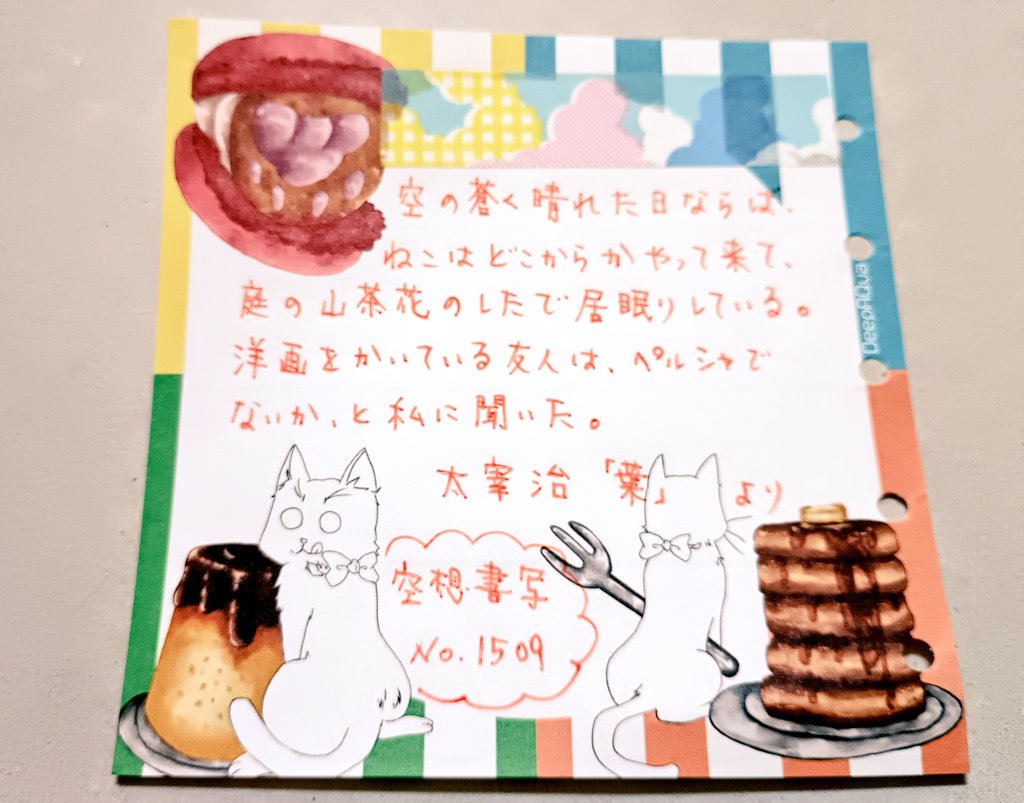 空の蒼く晴れた日ならば、
ねこはどこからかやって来て、
庭の山茶花のしたで居眠りしている。
洋画をかいている友人は、ペルシャで
ないか、と私に聞いた。
太宰治「葉」より
空想書写
No.1509
DeepAQua